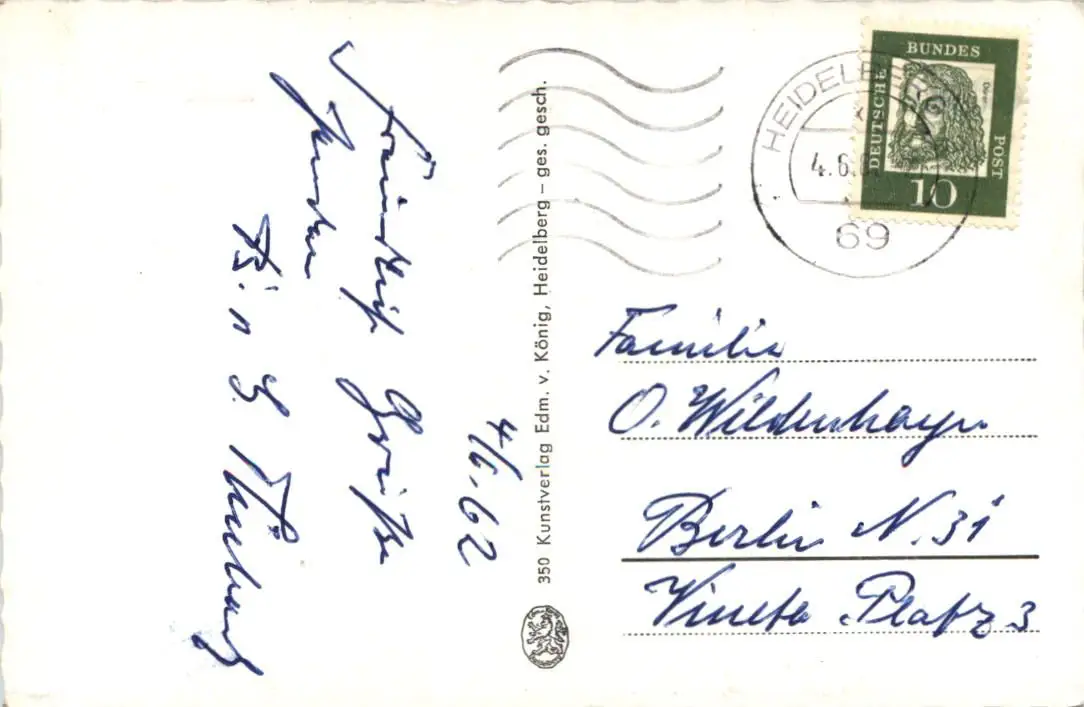 4/6.62
Freundliche Grüße
senden
B. n G.
350 Kunstverlag Edm. v. König, Heidelberg – ges. gesch.
HEIDELBERG
4.6.6
69
DEUTSCHE BUNDES POST
Dürer
10
Familie
O. Wildenhayn
Berlin N. 31
Vineta-Platz 3